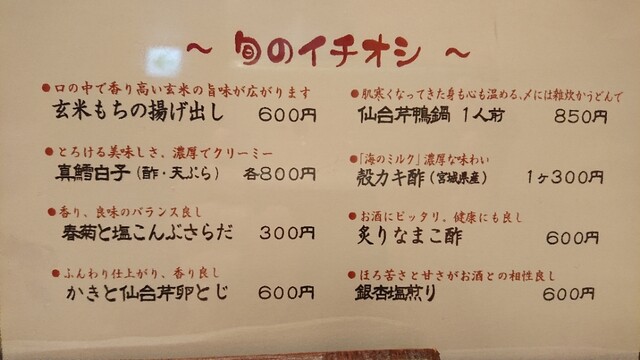 ～ 旬のイチオシ ～
●口の中で香り高い玄米の旨味が広がります
玄米もちの揚げ出し 600円
●とろける美味しさ、濃厚でクリーミー
真鱈白子（酢・天ぷら） 各800円
●香り、良味のバランス良し
春菊と塩こんぶさらだ 300円
●ふんわり仕上がり、香り良し
かきと仙台芹卵とじ 600円
●肌寒くなってきた身も心も温める、〆には雑炊かうどんで
仙台芹鴨鍋 1人前 850円
●「海のミルク」濃厚な味わい
殻カキ酢（宮城県産） 1ヶ300円
●お酒にピッタリ、健康にも良し
炙りなまこ酢 600円
●ほろ苦さと甘さがお酒との相性良し
銀杏塩煎り 600円